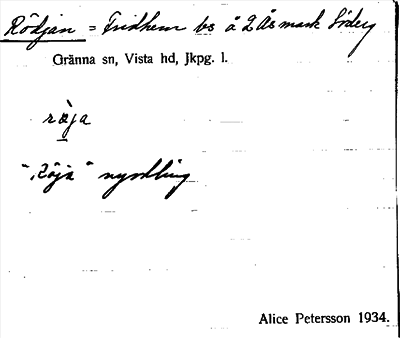 Rödjan = Fridhem bs å 2 Åsmark Söderg
Gränna sn, Vista hd, Jkpg. l.
ròja
"Röja" nyodling
Alice Petersson 1934.